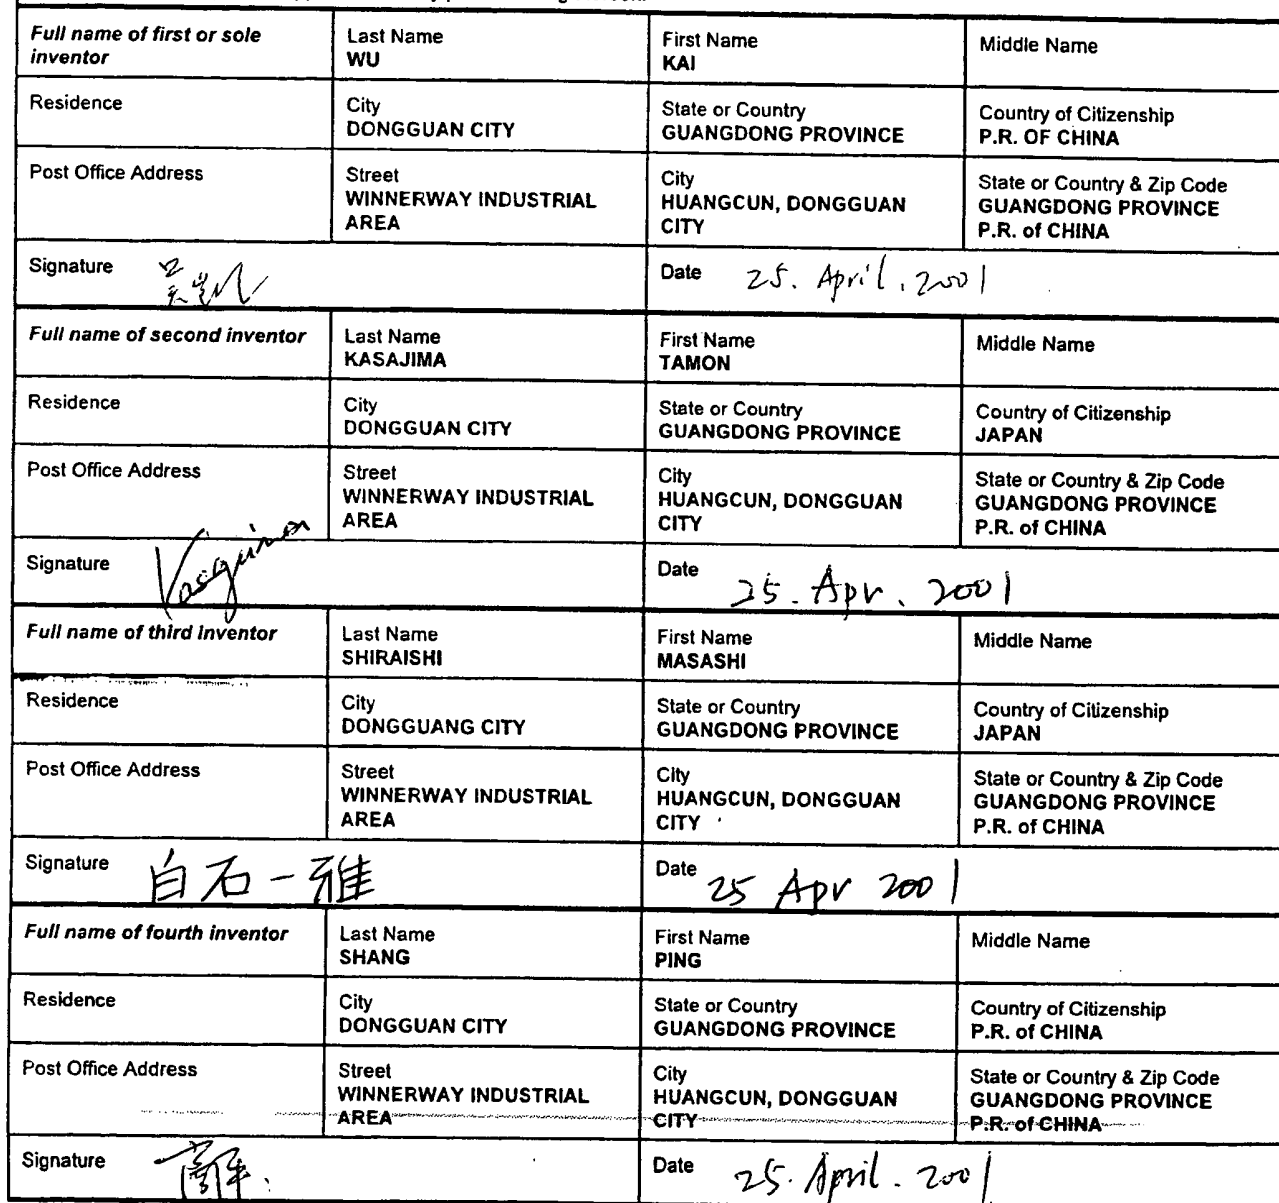 Full name of first or sole inventor
Last Name
WU
First Name
KAI
Middle Name
Residence
City
DONGGUAN CITY
State or Country
GUANGDONG PROVINCE
Country of Citizenship
P.R. OF CHINA
Post Office Address
Street
WINNERWAY INDUSTRIAL
AREA
City
HUANGCUN, DONGGUAN
CITY
State or Country & Zip Code
GUANGDONG PROVINCE
P.R. of CHINA
Signature
吴凯
Date
25. April. 2001
Full name of second inventor
Last Name
KASAJIMA
First Name
TAMON
Middle Name
Residence
City
DONGGUAN CITY
State or Country
GUANGDONG PROVINCE
Country of Citizenship
JAPAN
Post Office Address
Street
WINNERWAY INDUSTRIAL
AREA
City
HUANGCUN, DONGGUAN
CITY
State or Country & Zip Code
GUANGDONG PROVINCE
P.R. of CHINA
Signature
Date
25. Apr. 2001
Full name of third inventor
Last Name
SHIRAISHI
First Name
MASASHI
Middle Name
Residence
City
DONGGUANG CITY
State or Country
GUANGDONG PROVINCE
Country of Citizenship
JAPAN
Post Office Address
Street
WINNERWAY INDUSTRIAL
AREA
City
HUANGCUN, DONGGUAN
CITY
State or Country & Zip Code
GUANGDONG PROVINCE
P.R. of CHINA
Signature
白石一雅
Date
25 Apr 2001
Full name of fourth inventor
Last Name
SHANG
First Name
PING
Middle Name
Residence
City
DONGGUAN CITY
State or Country
GUANGDONG PROVINCE
Country of Citizenship
P.R. of CHINA
Post Office Address
Street
WINNERWAY INDUSTRIAL
AREA
City
HUANGCUN, DONGGUAN
CITY
State or Country & Zip Code
GUANGDONG PROVINCE
P.R. of CHINA
Signature
Date
25. April. 2001